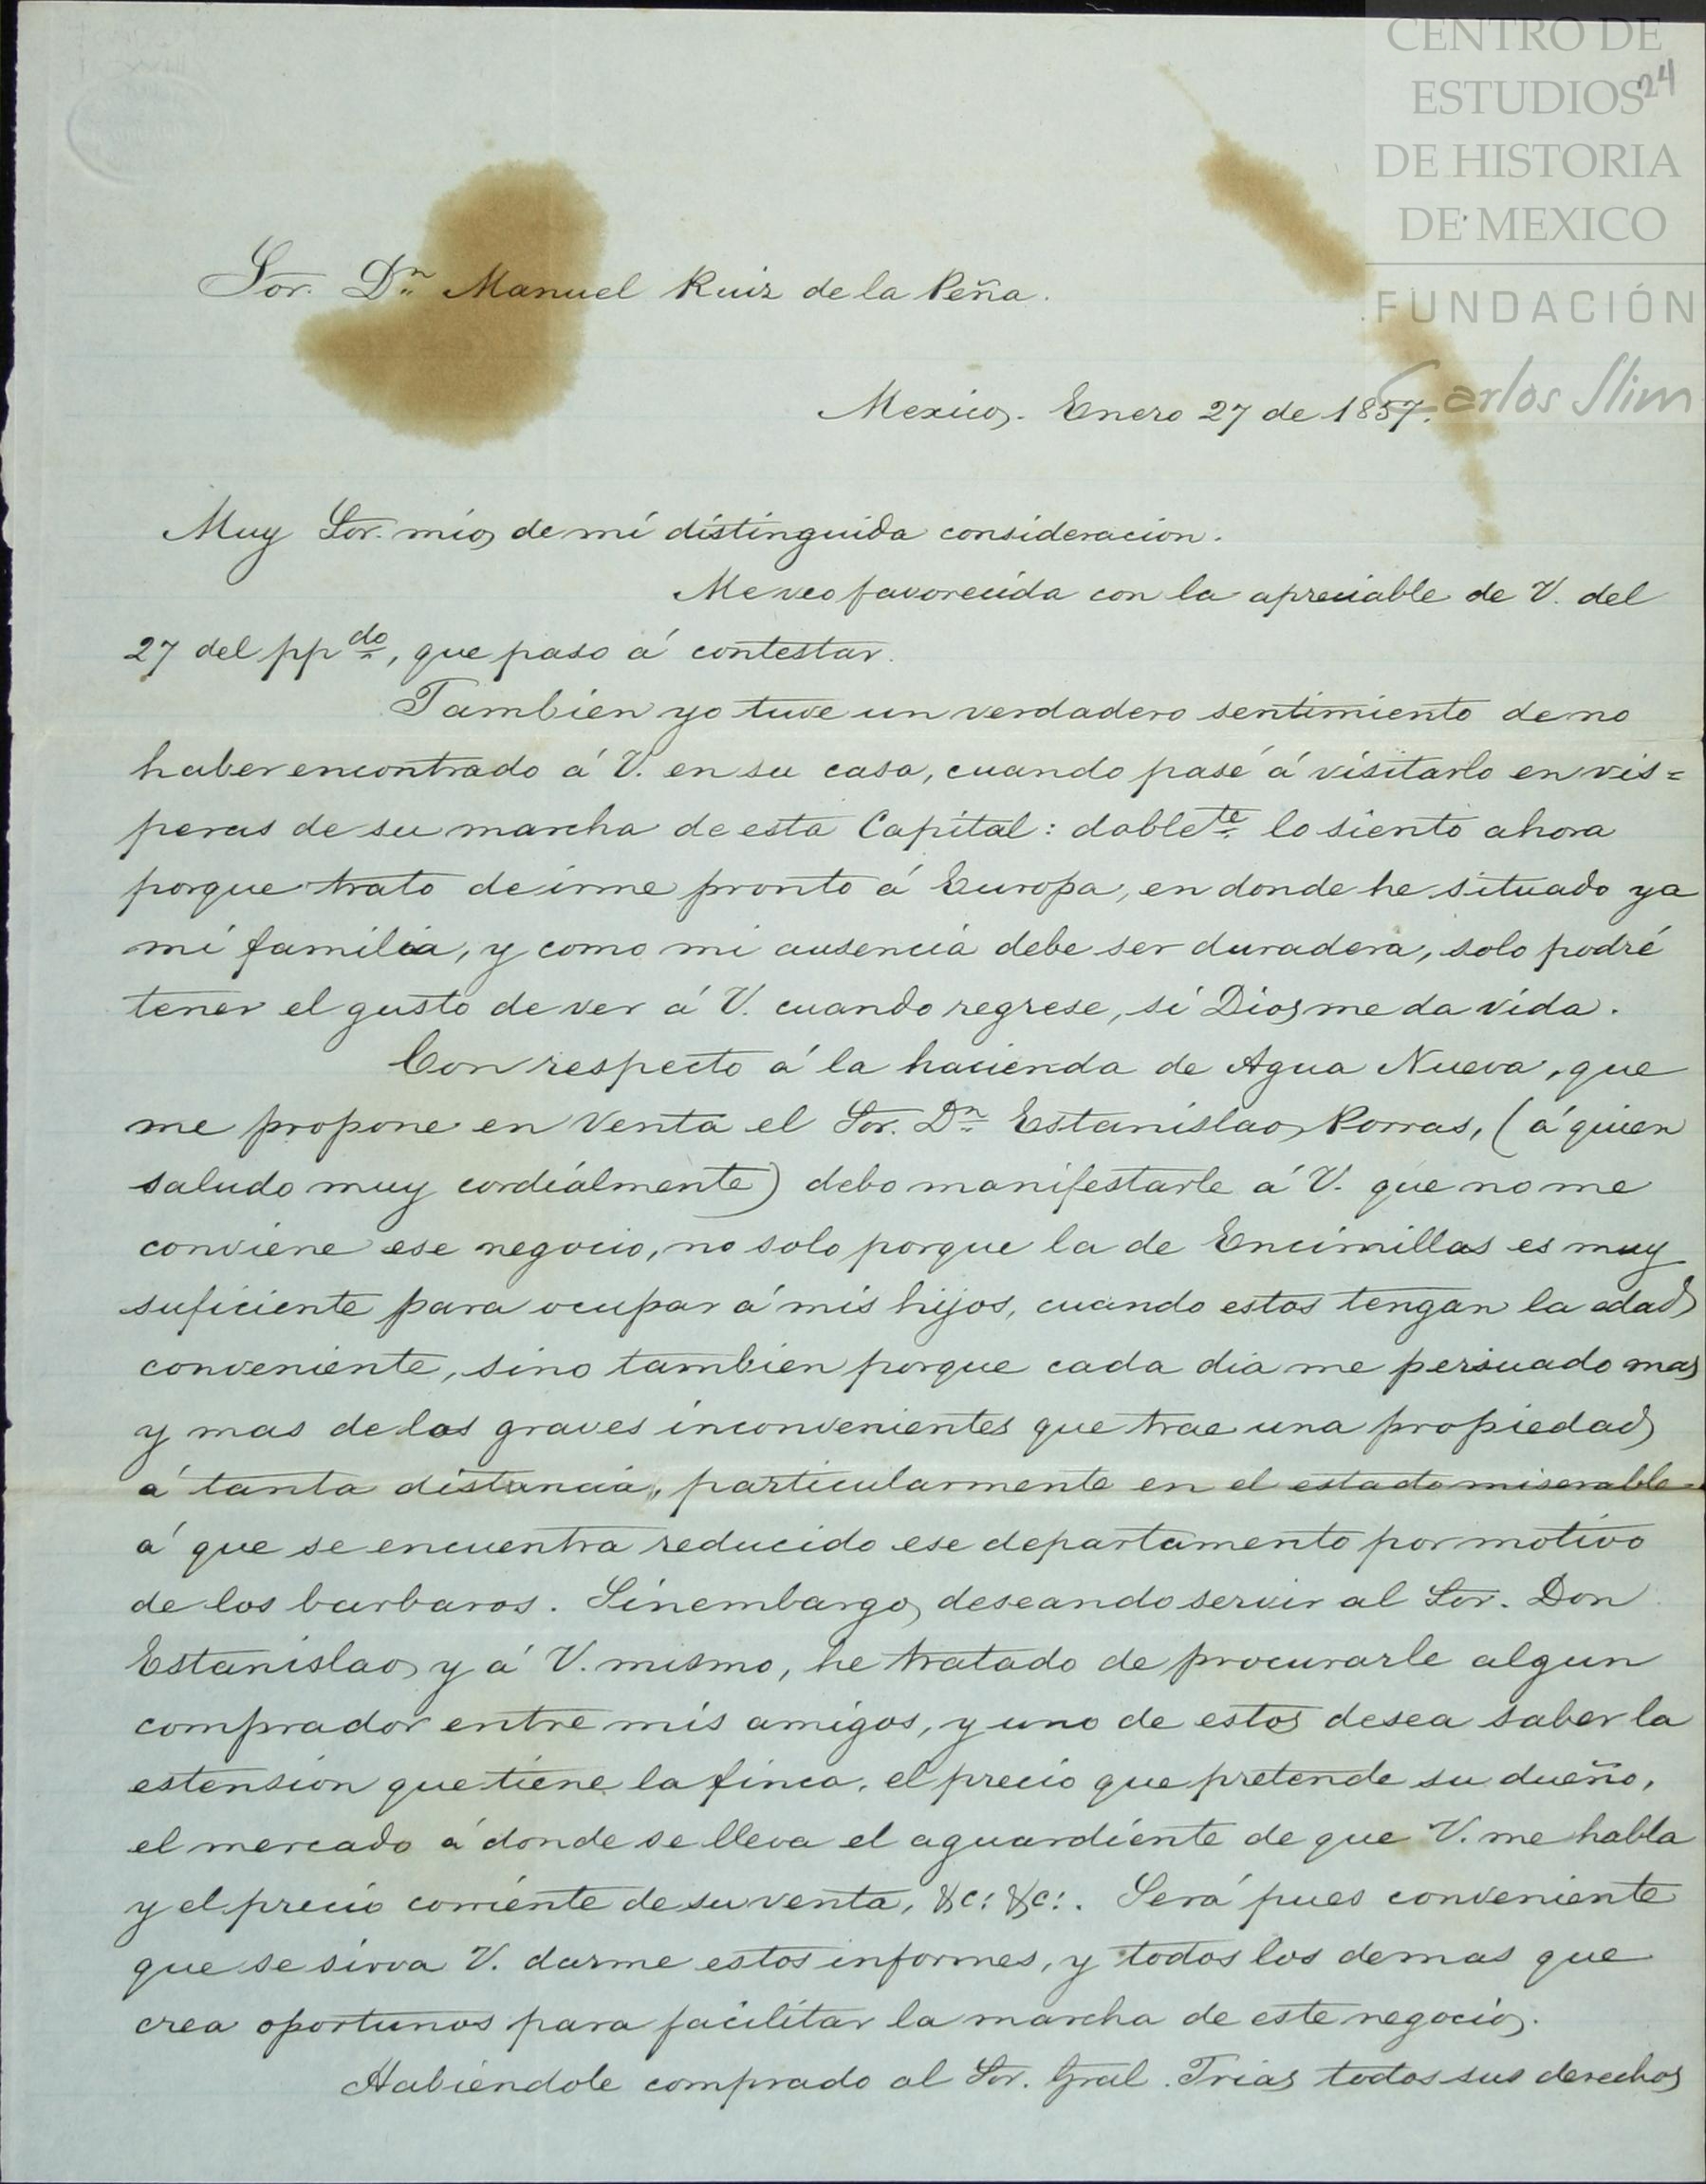 CENTRO DE
ESTUDIOS
24
DE HISTORIA
DE MEXICO
FUNDACIÓN
Carlos Slim
Sor. Dn. Manuel Ruiz de la Peña.
Mexico. Enero 27 de 1857.
Muy Sor. mio de mi distinguida consideracion.
Me veo favorecida con la apreciable de V. del
27 del ppdo, que paso á contestar.
Tambien yo tuve un verdadero sentimiento de no
haber encontrado á V. en su casa, cuando pasé á visitarlo en vis=
peras de su marcha de esta Capital: doblete. lo siento ahora
porque trato de irme pronto á Europa, en donde he situado ya
mi familia, y como mi ausencia debe ser duradera, solo podré
tener el gusto de ver á V. cuando regrese, si Dios me da vida.
Con respecto á la hacienda de Agua Nueva, que
me propone en venta el Sor. Dn. Estanislao Porras, (á quien
saludo muy cordialmente) debo manifestarle á V. que no me
conviene ese negocio, no solo porque la de Encimillas es muy
suficiente para ocupar á mis hijos, cuando estos tengan la edad
conveniente, sino tambien porque cada dia me persuado mas
y mas de los graves inconvenientes que trae una propiedad
á tanta distancia, particularmente en el estado miserable
á que se encuentra reducido ese departamento por motivo
de los barbaros. Sinembargo, deseando servir al Sor. Don
Estanislao y á V. mismo, he tratado de procurarle algun
comprador entre mis amigos, y uno de estos desea saber la
estension que tiene la finca, el precio que pretende su dueño,
el mercado á donde se lleva el aguardiente de que V. me habla
y el precio corriente de su venta, &c: &c:. Será pues conveniente
que se sirva V. darme estos informes, y todos los demas que
crea oportunos para facilitar la marcha de este negocio.
Habiendole comprado al Sor. Gral. Trias todos sus derechos